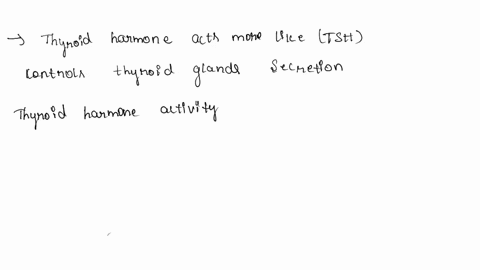 → Thyroid harmone acts more like (TSH)
controls thyroid glands secretion
Thyroid harmone activity